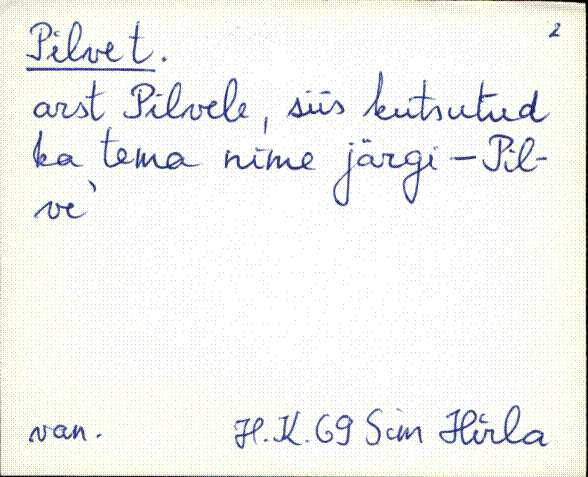 2
Pilve t.
arst Pilvele, siis kutsutud
ka tema nime järgi – Pil-
ve`
van. H.K. 69 Sim Hirla